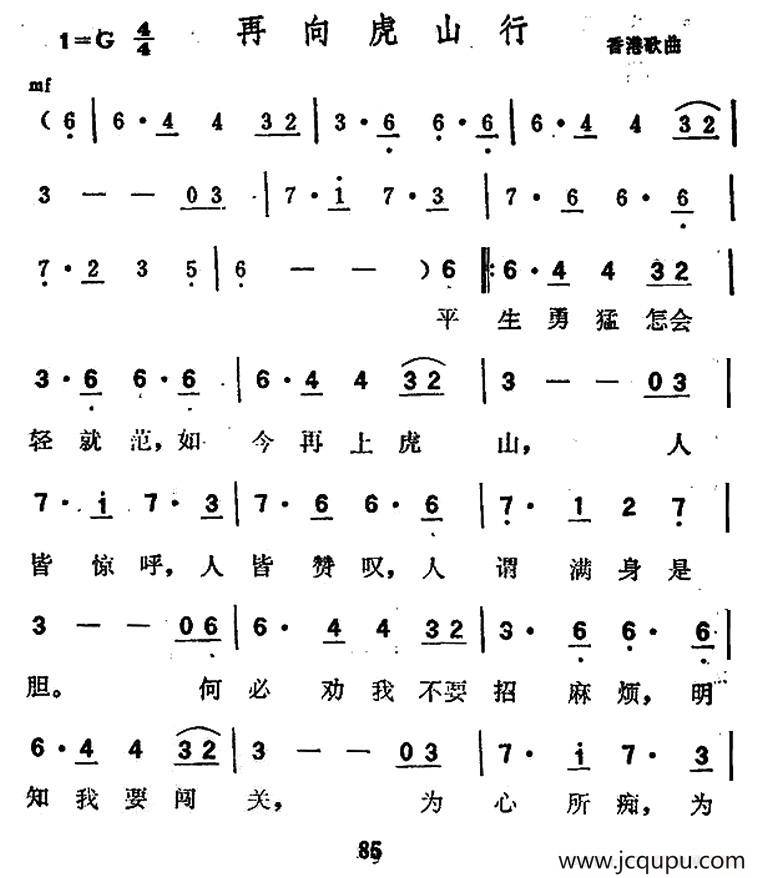 再向虎山行
1=G 4/4
香港歌曲
mf
( 6 | 6 · 4 4 3 2 | 3 · 6 6 · 6 | 6 · 4 4 3 2 |
3 — — 0 3 | 7 · i 7 · 3 | 7 · 6 6 · 6 |
7 · 2 3 5 | 6 — — ) 6 ‖: 6 · 4 4 3 2 |
平 生 勇 猛 怎会
3 · 6 6 · 6 | 6 · 4 4 3 2 | 3 — — 0 3 |
轻 就 范, 如 今 再 上 虎 山, 人
7 · i 7 · 3 | 7 · 6 6 · 6 | 7 · 1 2 7 |
皆 惊 呼, 人 皆 赞 叹, 人 谓 满 身 是
3 — — 0 6 | 6 · 4 4 3 2 | 3 · 6 6 · 6 |
胆。 何 必 劝 我 不要 招 麻 烦, 明
6 · 4 4 3 2 | 3 — — 0 3 | 7 · i 7 · 3 |
知 我 要 闯 关, 为 心 所 痴, 为
85
www.jcqupu.com